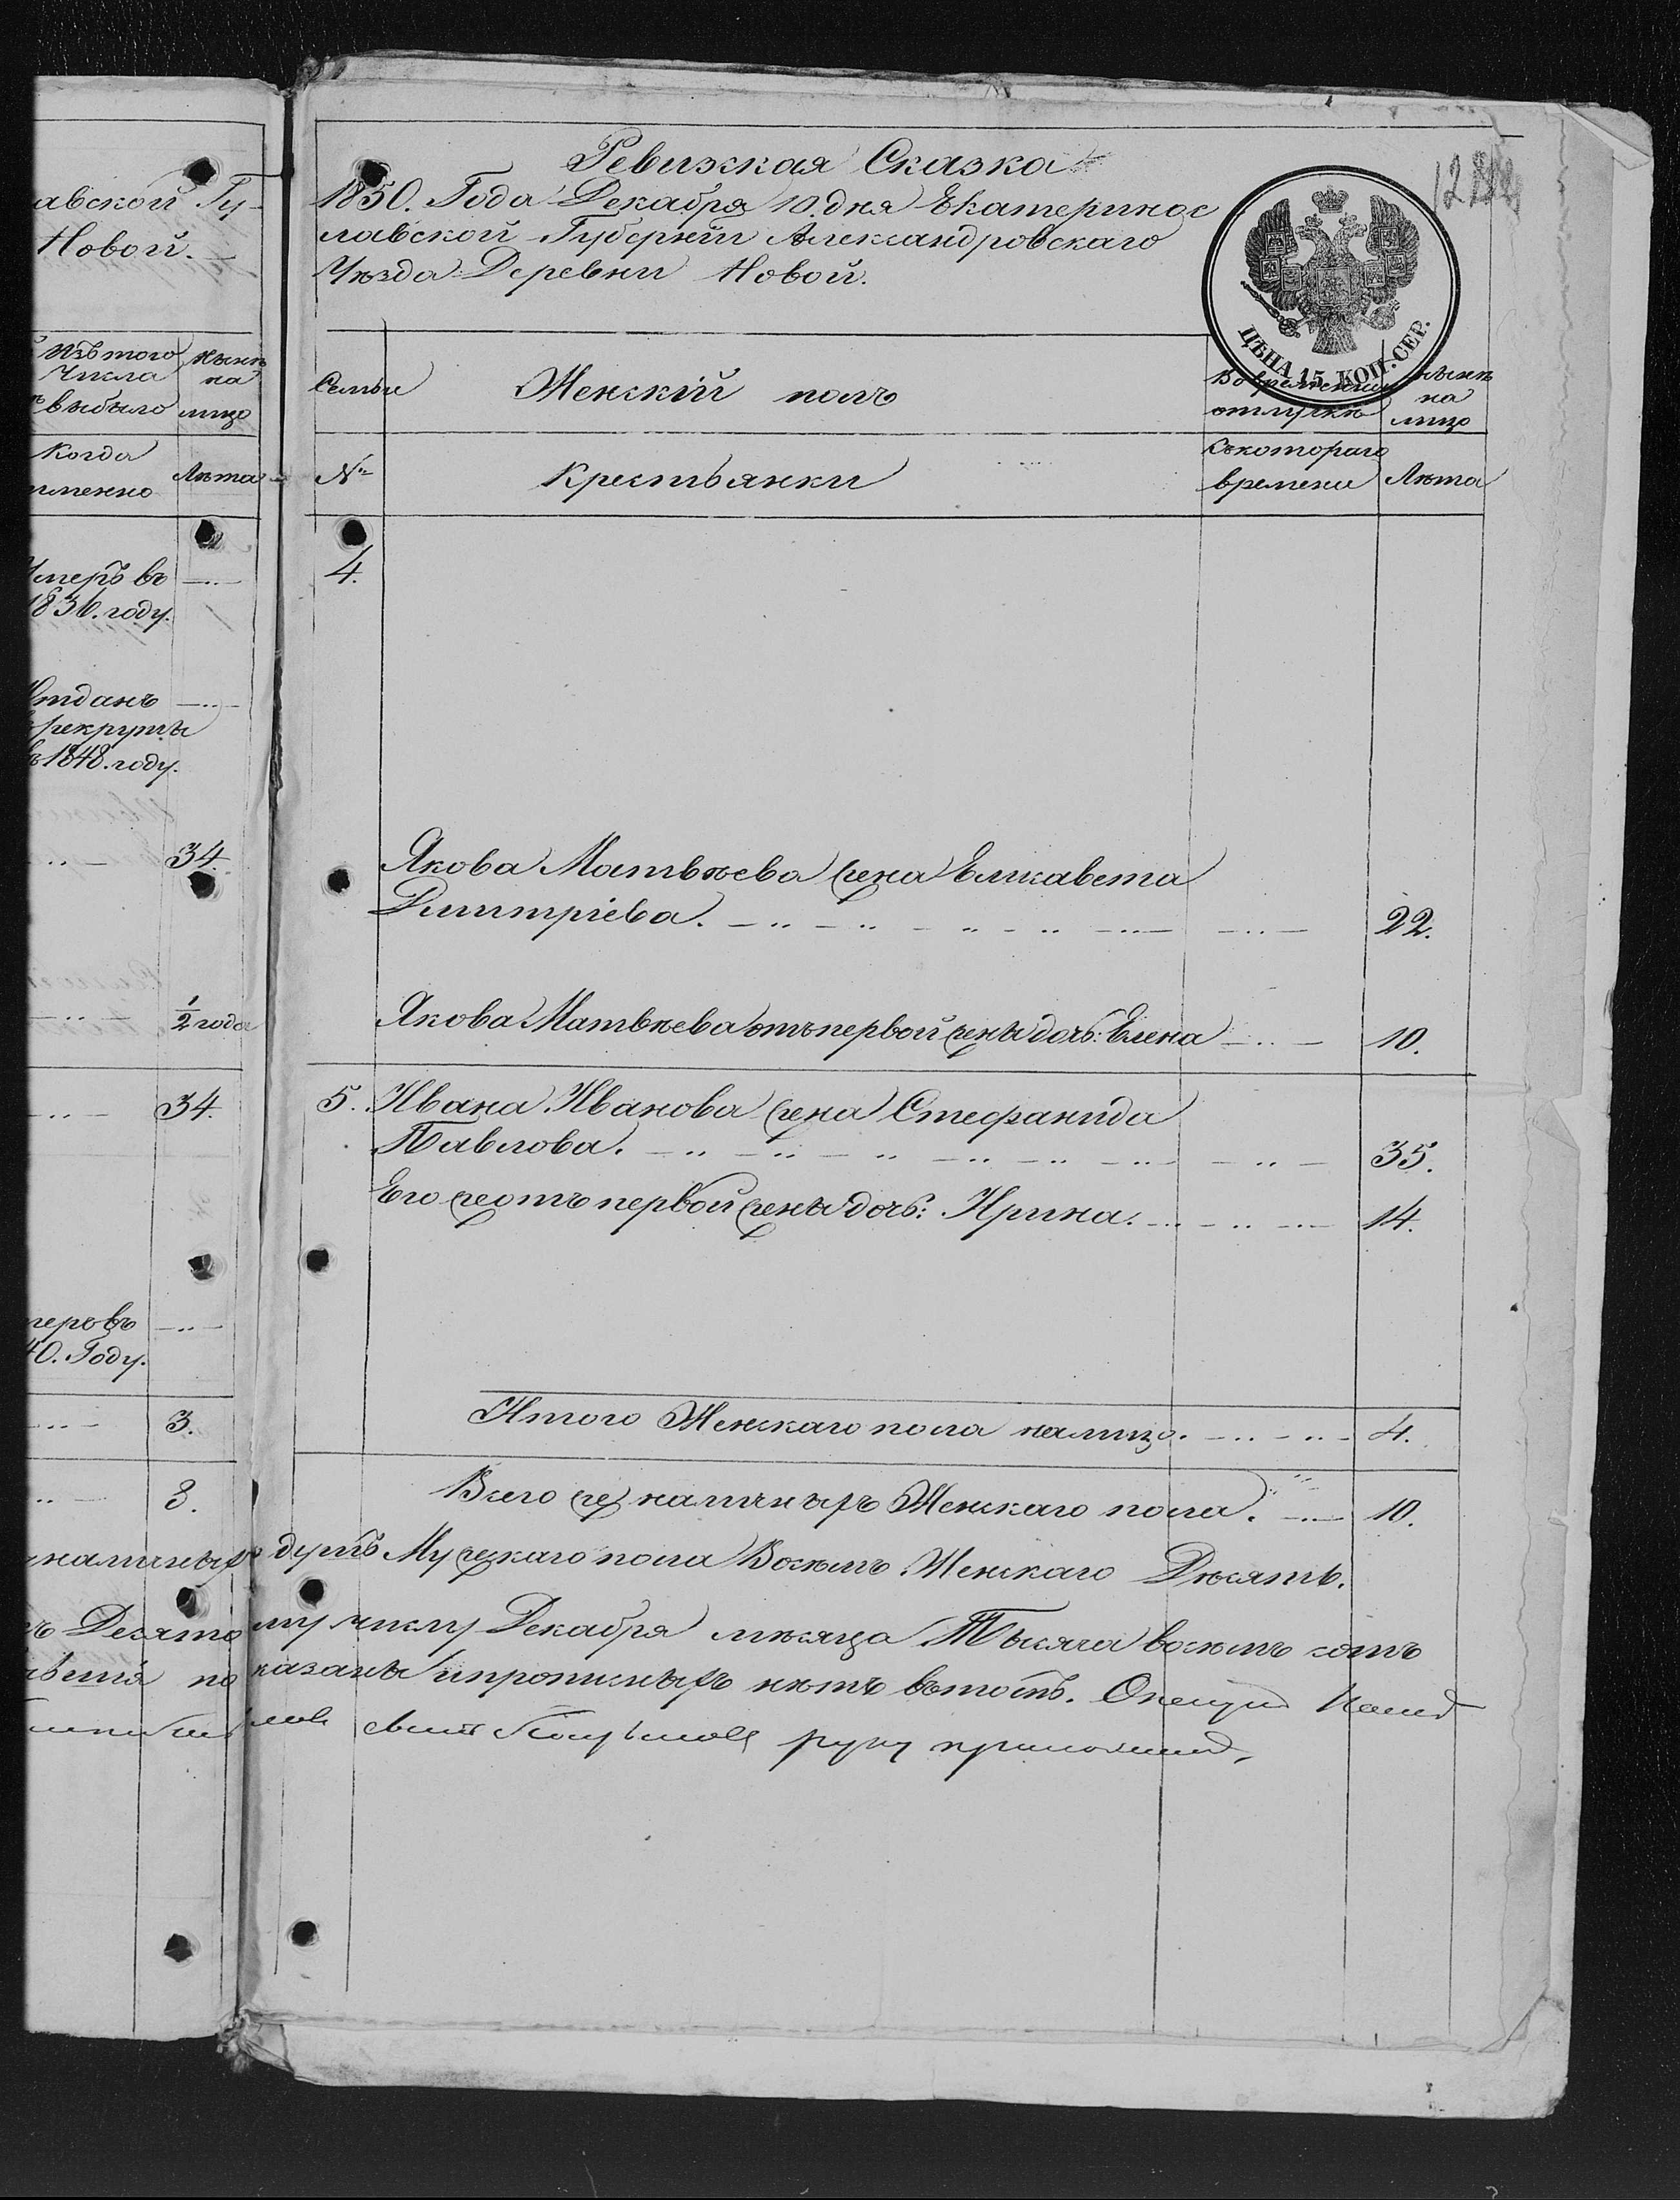 авской Гу-
Новой.
Изъ того
числа
выбыло
нынѣ
на
лицо
Когда
именно
Лѣта
Умеръ въ
1836. году.
Отданъ
рекруты
въ 1848. году.
34.
1/2 года
34.
меръ въ
40. Году.
3.
8.
Ревизская Сказка
1850. Года Декабря 10. дня Екатеринос
лавской Губерніи Александровскаго
Уѣзда Деревни Новой.
ЦѢНА 15 КОП. СЕР.
Семьи
Женскій полъ
Во временной
отлучкѣ
нынѣ
на
лицо
№
Крестьянки
Съ котораго
времени
Лѣта
4.
Якова Матвѣева жена Елизавета
Дмитріева. 22.
Якова Матвѣева отъ первой жены дочь: Елена 10.
5. Ивана Иванова жена Стефанида
Павлова. 35.
Его же отъ первой жены дочь: Ирина. 14.
Итого Женскаго пола налицо. 4.
Всего же наличныхъ Женскаго пола. 10.
наличныхъ душъ Мужскаго пола Восемь Женскаго Десять.
Десято му числу Декабря мѣсяца Тысяча восемь сотъ
по казаны и прописныхъ нѣтъ въ томъ. Опекунъ
руку приложилъ,